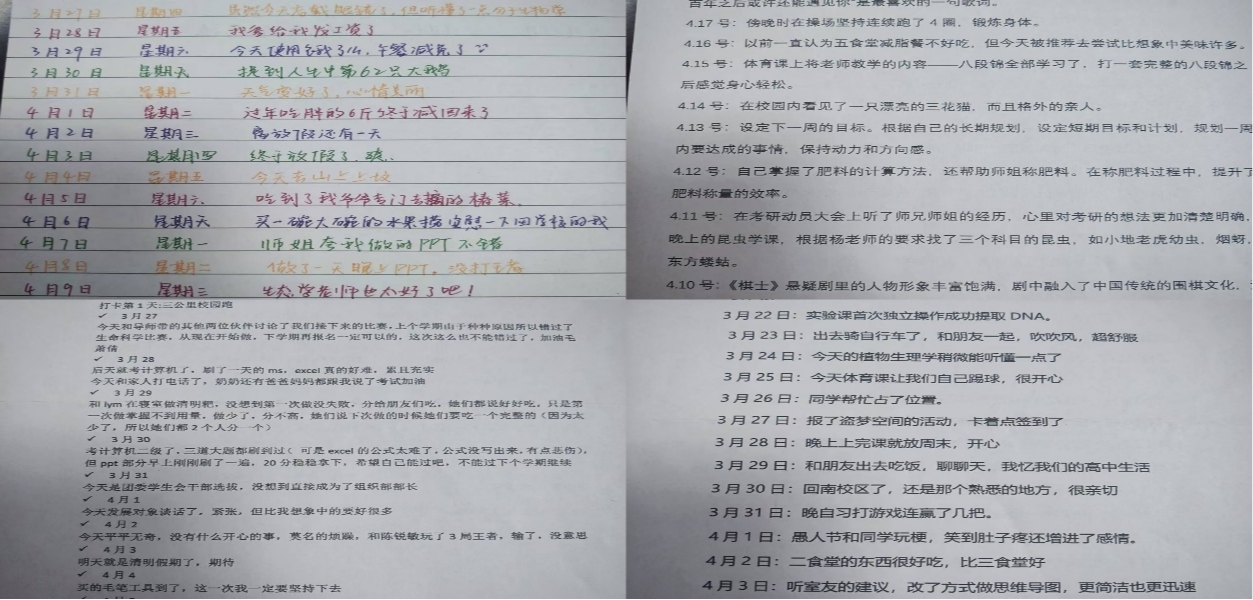 3月27日 星期四
3月28日 星期五 我爸给我发工资了
3月29日 星期六
3月30日 星期天 捉到人生中第62只大鹅
3月31日 星期一 天气变好了,心情美丽
4月1日 星期二 过年吃胖的6斤终于减回来了
4月2日 星期三 离放假还有一天
4月3日 星期四 终于放假了,
4月4日 星期五 今天去山上上坟
4月5日 星期六 吃到了我爷爷专门去摘的椿菜
4月6日 星期天 买一碗大碗的水果捞安慰一下回学校的我
4月7日 星期一 师姐夸我做的PPT不错
4月8日 星期二 做了一天晚上PPT,没打王者
4月9日 星期三 生态学老师也太好了吧!
百年之后或许还能遇见你"是最喜欢的一句歌词。
4.17 号:傍晚时在操场坚持连续跑了 4 圈,锻炼身体。
4.16 号:以前一直认为五食堂减脂餐不好吃,但今天被推荐去尝试比想象中美味许多。
4.15 号:体育课上将老师教学的内容——八段锦全部学习了,打一套完整的八段锦之
后感觉身心轻松。
4.14 号:在校园内看见了一只漂亮的三花猫,而且格外的亲人。
4.13 号:设定下一周的目标。根据自己的长期规划,设定短期目标和计划,规划一周
内要达成的事情,保持动力和方向感。
4.12 号:自己掌握了肥料的计算方法,还帮助师姐称肥料。在称肥料过程中,提升了
肥料称量的效率。
4.11 号:在考研动员大会上听了师兄师姐的经历,心里对考研的想法更加清楚明确,
晚上的昆虫学课,根据杨老师的要求找了三个科目的昆虫,如小地老虎幼虫,烟蚜,
东方蝼蛄。
4.10 号:《棋士》悬疑剧里的人物形象丰富饱满,剧中融入了中国传统的围棋文化,
打卡第 1 天:三公里校园跑
✓ 3 月 27
今天和导师带的其他两位伙伴讨论了我们接下来的比赛,上个学期由于种种原因所以错过了
生命科学比赛,从现在开始做,下学期再报名一定可以的,这次这么也不能错过了,加油毛
萧倩
✓ 3 月 28
后天就考计算机了,刷了一天的 ms,excel 真的好难,累且充实
今天和家人打电话了,奶奶还有爸爸妈妈都跟我说了考试加油
✓ 3 月 29
和 lym 在寝室做清明粑,没想到第一次做没失败,分给朋友们吃,她们都说好好吃,只是第
一次做掌握不到用量,做少了,分不高,她们说下次做的时候她们要吃一个完整的(因为太
少了,所以她们都 2 个人分一个)
✓ 3 月 30
考计算机二级了,三道大题都刷到过(可是 excel 的公式太难了,公式没写出来,有点悲伤),
但 ppt 部分早上刚刚刷了一遍,20 分稳稳拿下,希望自己能过吧,不能过下个学期继续
✓ 3 月 31
今天是团委学生会干部选拔,没想到直接成为了组织部部长
✓ 4 月 1
今天发展对象谈话了,紧张,但比我想象中的要好很多
✓ 4 月 2
今天平平无奇,没有什么开心的事,莫名的烦躁,和陈锐敏玩了 3 局王者,输了,没意思
✓ 4 月 3
明天就是清明假期了,期待
✓ 4 月 4
买的毛笔工具到了,这一次我一定要坚持下去
3 月 22 日:实验课首次独立操作成功提取 DNA。
3 月 23 日:出去骑自行车了,和朋友一起,吹吹风,超舒服
3 月 24 日:今天的植物生理学稍微能听懂一点了
3 月 25 日:今天体育课让我们自己踢球,很开心
3 月 26 日:同学帮忙占了位置。
3 月 27 日:报了盗梦空间的活动,卡着点签到了
3 月 28 日:晚上上完课就放周末,开心
3 月 29 日:和朋友出去吃饭,聊聊天,我忆我们的高中生活
3 月 30 日:回南校区了,还是那个熟悉的地方,很亲切
3 月 31 日:晚自习打游戏连赢了几把。
4 月 1 日:愚人节和同学玩梗,笑到肚子疼还增进了感情。
4 月 2 日:二食堂的东西很好吃,比三食堂好
4 月 3 日:听室友的建议,改了方式做思维导图,更简洁也更迅速